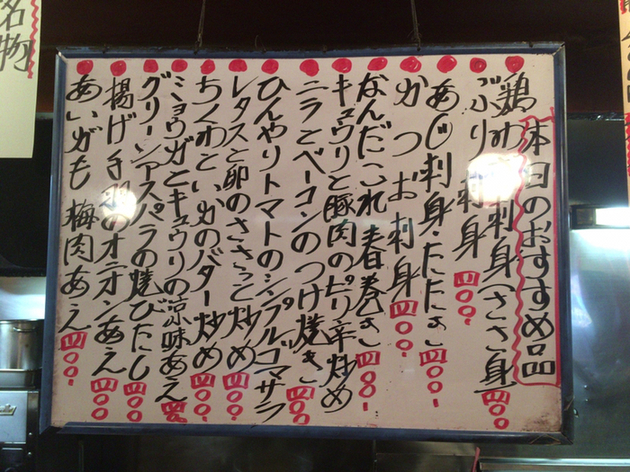 本日のおすすめ品
鶏わ 刺身(ささ身) 四〇〇.
ぶり刺身 四〇〇.
あじ刺身・たたき 四〇〇.
かつお刺身 四〇〇.
なんだこれ春巻き 四〇〇.
キュウリと豚肉のピリ辛炒め
ニラとベーコンのつけ焼き 四〇〇
ひんやりトマトのシンプルゴマサラ
レタスと卵のささっと炒め 四〇〇.
ちくわといかのバター炒め 四〇〇.
ミョウガとキュウリの涼味あえ
グリーンアスパラの焼びたし 四〇〇
揚げ手羽のオニオンあえ 四〇〇
あいがも梅肉あえ 四〇〇.
名物